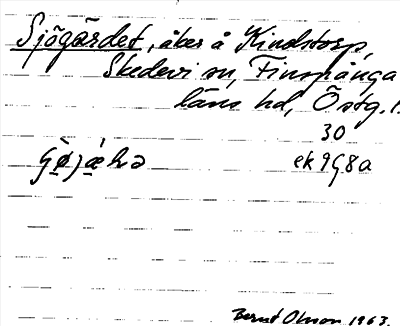 Sjögärdet, åker å Kindstorp,
Skedevi sn, Finspånga
läns hd, Östg. l.
30
ek 9G8a
Bernt Olsson 1963.